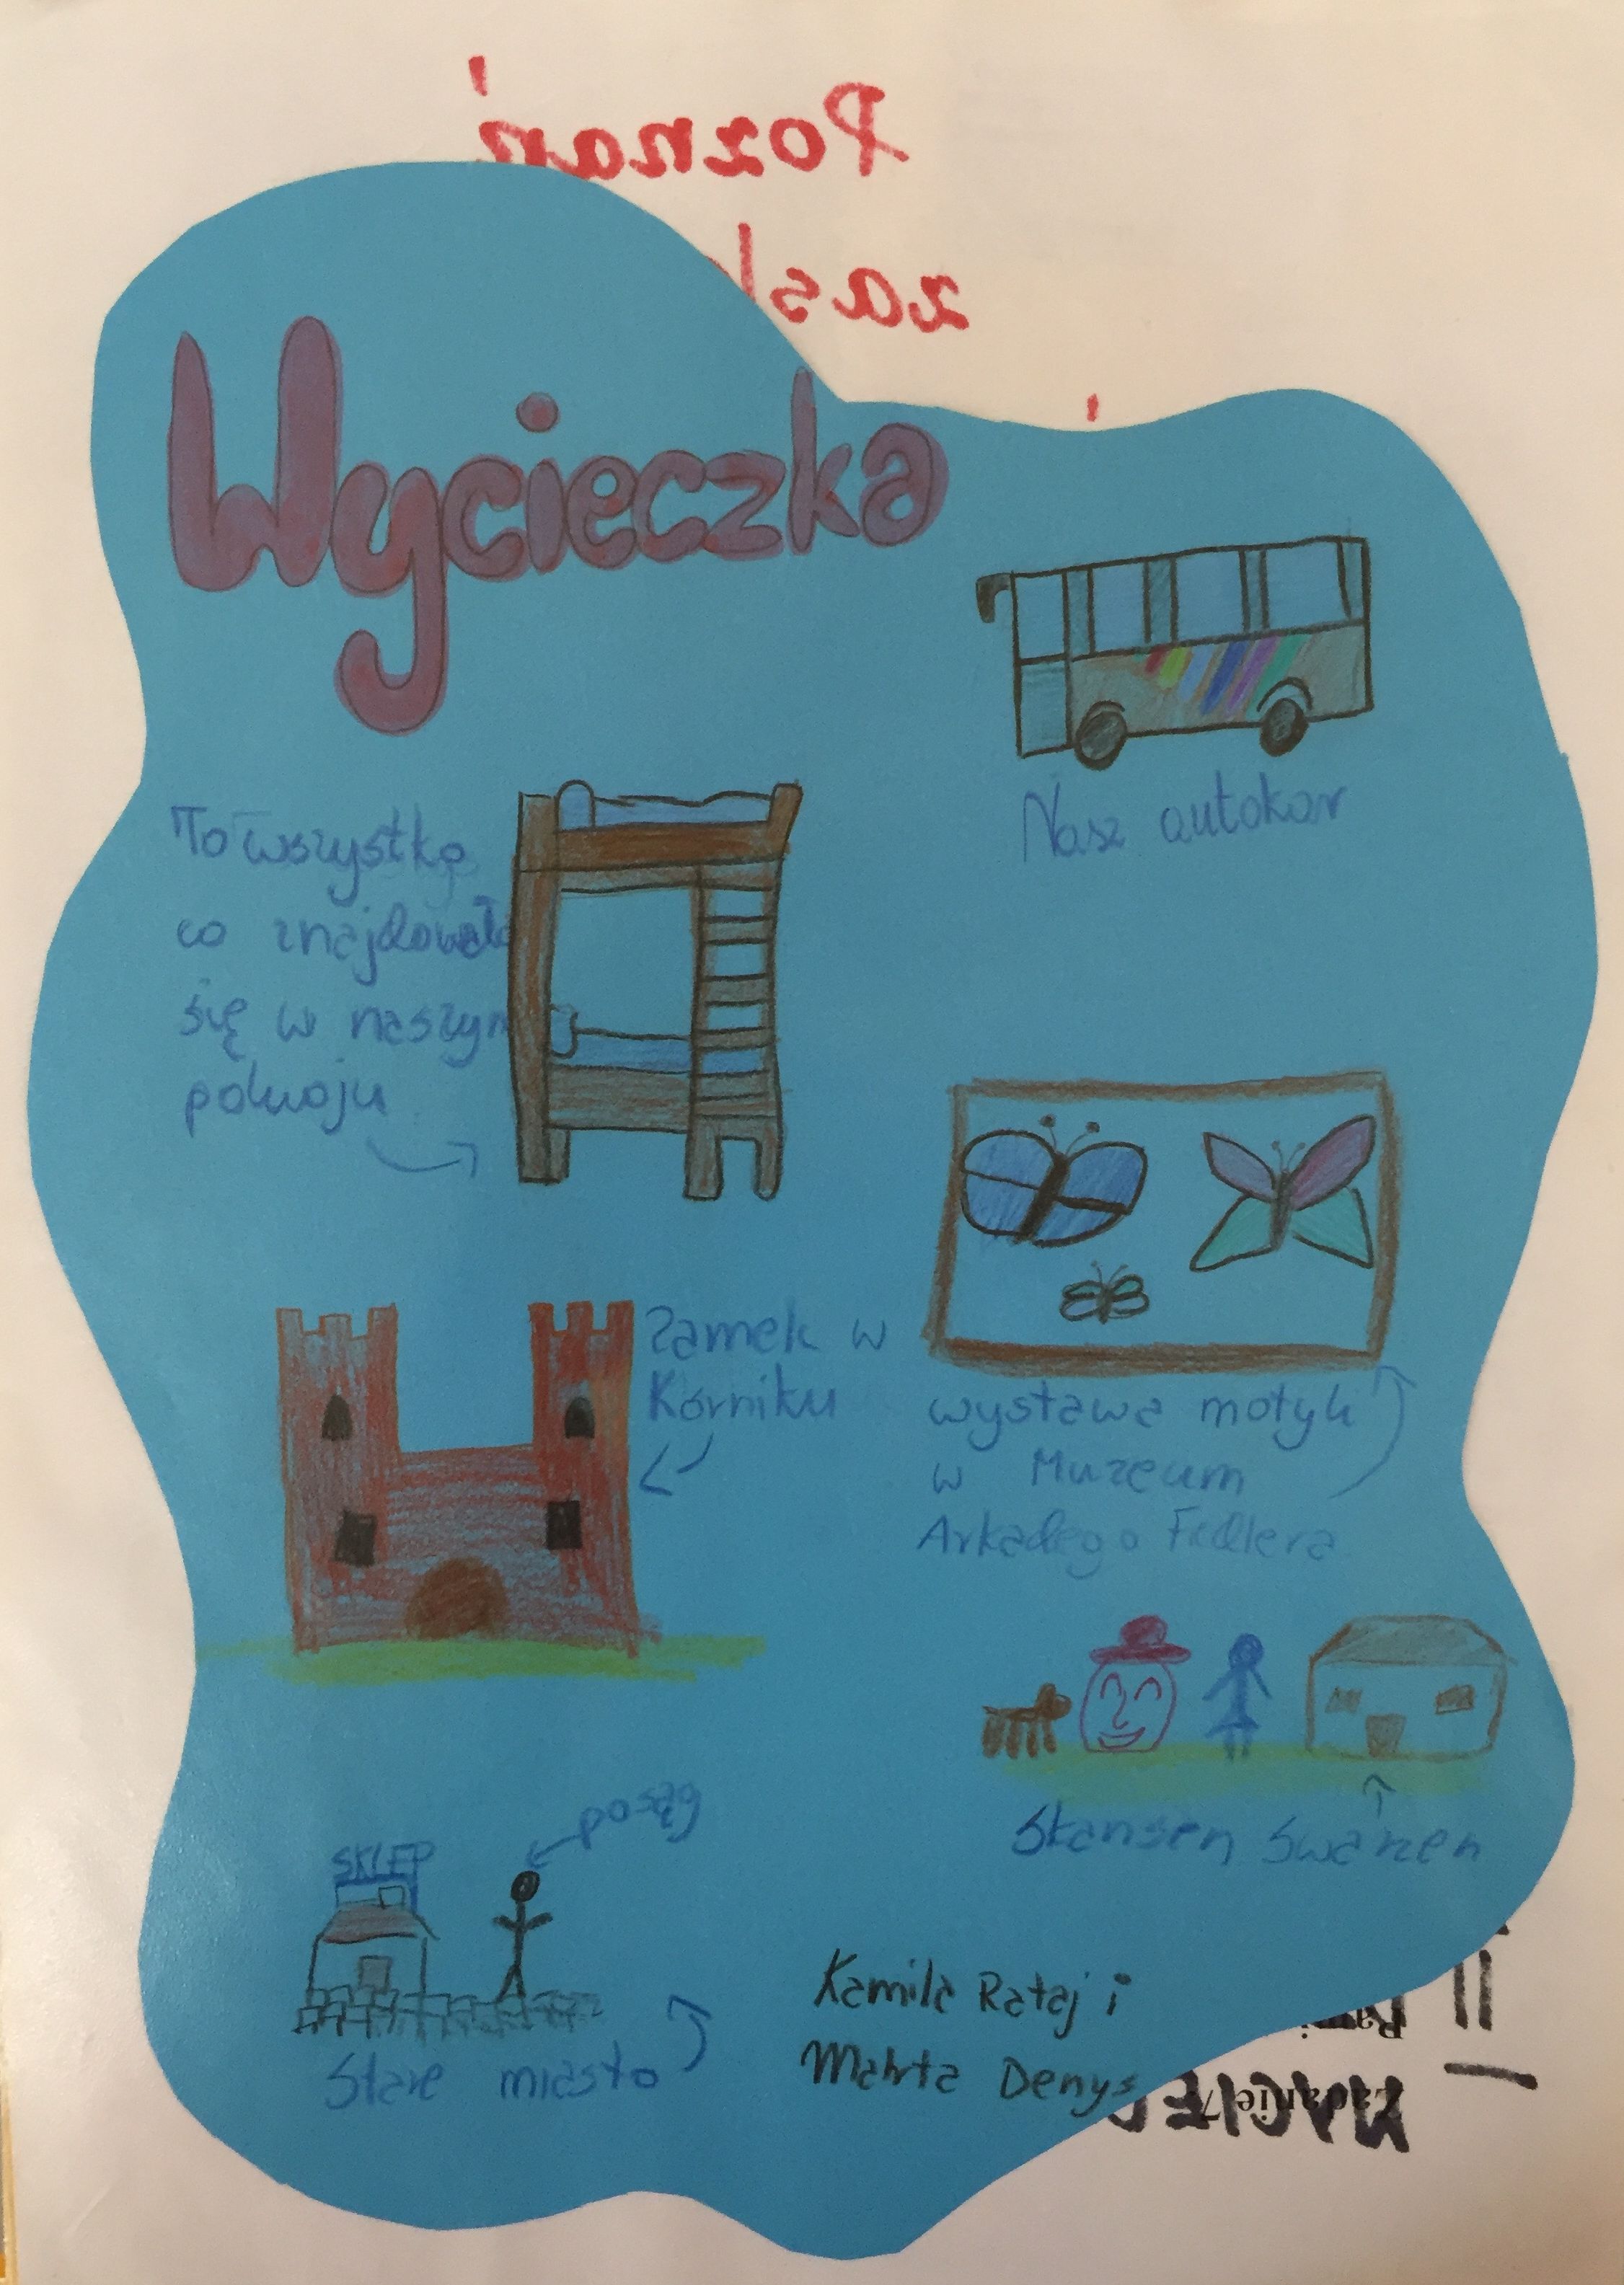 Poznań
Wycieczka
Nasz autokar
To wszystko
co znajdowało
się w naszym
pokoju
Zamek w
Korniku
wystawa motyli
w Muzeum
Arkadego Fiedlera
Skansen Swarzen
posąg
SKLEP
Stare miasto
Kamila Rataj i
Marta Denys
Zadanie 7